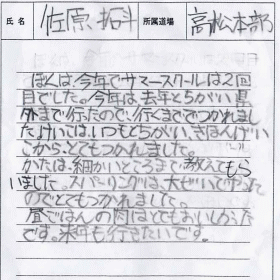 氏名 佐原拓斗 所属道場 高松本部
ぼくは、今年でサマースクールは2回
目でした。今年は、去年とちがい県
外まで行ったので、行くまででつかれまし
た。けいこは、いつもとちがい、きほんげい
こから、とてもつかれました。
かたは、細かいところまで教えてもら
いました。スパーリングは、大ぜいでやった
のでとてもつかれました。
昼ごはんの肉はとてもおいしかった
です。来年も行きたいです。